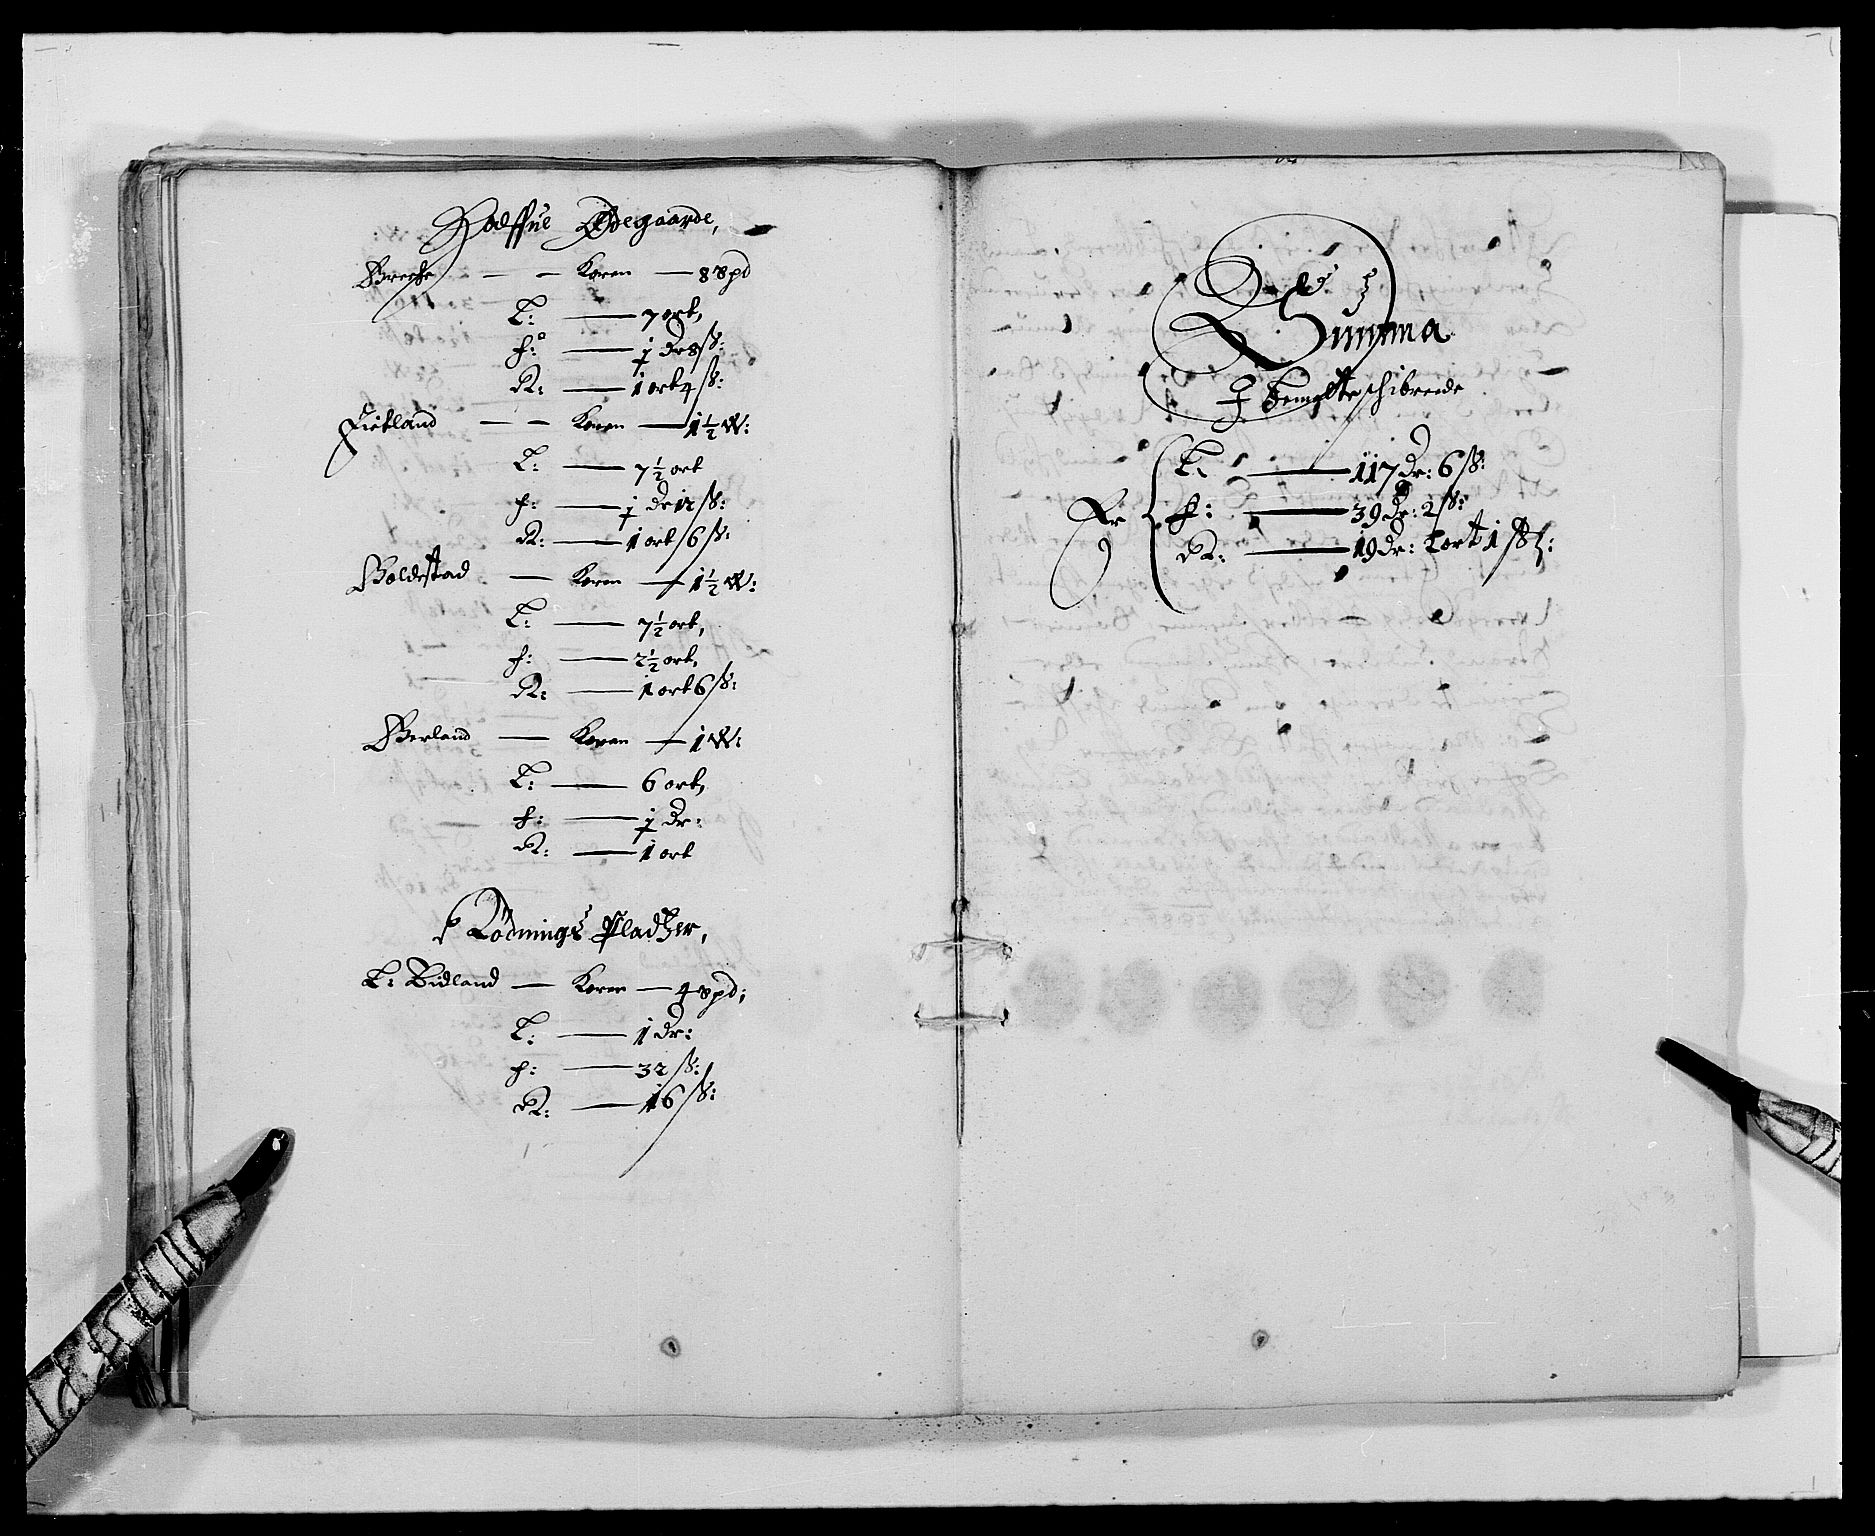 Ødegaarde,
Koren — 8 spd
L: — 7 ort,
f: — j dr 8 ß:
R: — 1 ort 4 ß:
Fietland — — Koren — 1½ W:
L: — 7½ ort
f: — j dr 12 ß:
R: — 1 ort 6 ß:
Boldestad — Koren — 1½ W:
L: — 7½ ort,
f: — 2½ ort,
R: — 1 ort 6 ß:
Berland — Koren — 1 W:
L: — 6 ort,
f: — j dr:
R: — 1 ort
Rödnings Pladtzer,
L: Birland — Koren — 4 spd;
L: — 1 dr:
f: — 32 ß:
R: — 16 ß:
Summa
schibrede
Er
L: — 117 dr: 6 ß:
f: — 39 dr: 2 ß:
R: — 19 dr: 2 ort 1 ßl: